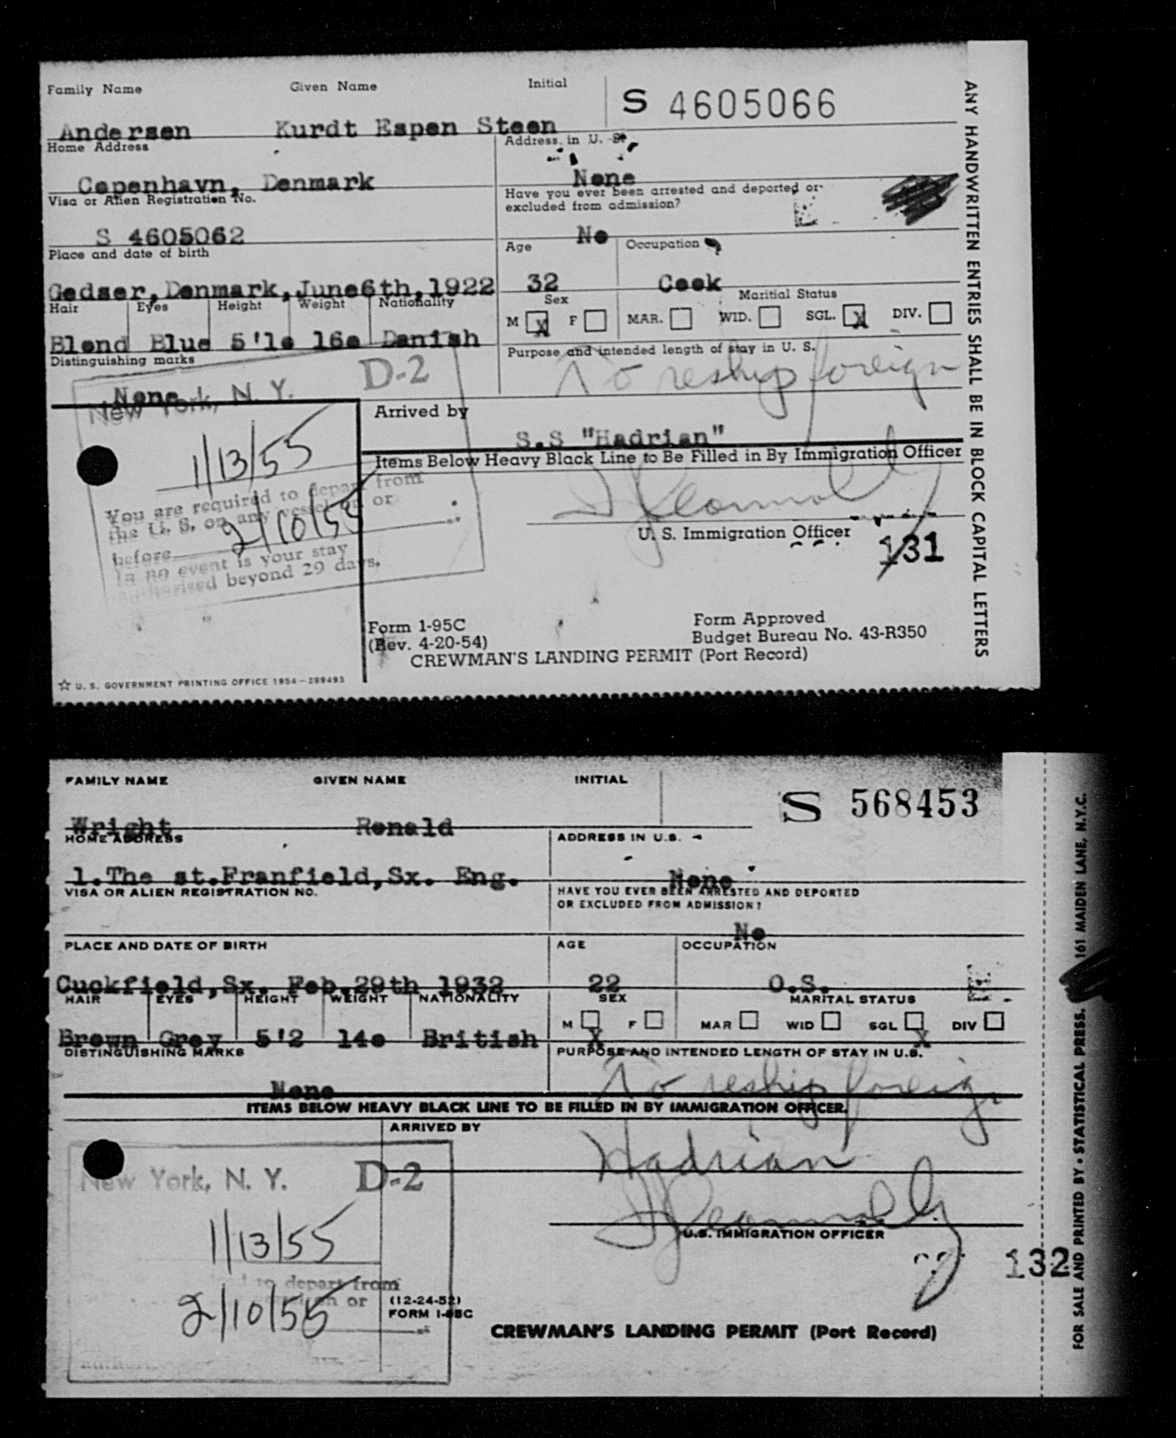 Family Name Given Name Initial
S 4605066
Andersen Kurdt Espen Steen
Home Address Address in U. S.
Copenhavn, Denmark None
Visa or Alien Registration No. Have you ever been arrested and deported or excluded from admission?
S 4605062 No
Place and date of birth Age Occupation
Gedser, Denmark, June6th, 1922 32 Cook
Hair Eyes Height Weight Nationality Sex Maritial Status
M X F MAR. WID. SGL. X DIV.
Blond Blue 5'10 160 Danish
Distinguishing marks Purpose and intended length of stay in U. S.
None To reship foreign
New York, N. Y. D-2
Arrived by
S.S "Hadrian"
1/13/55
Items Below Heavy Black Line to Be Filled in By Immigration Officer
You are required to depart from
the U. S. on any vessel on or
before 2/10/55
in no event is your stay
authorised beyond 29 days.
U. S. Immigration Officer
131
Form 1-95C Form Approved
(Rev. 4-20-54) Budget Bureau No. 43-R350
CREWMAN'S LANDING PERMIT (Port Record)
☆ U. S. GOVERNMENT PRINTING OFFICE 1954—299493
ANY HANDWRITTEN ENTRIES SHALL BE IN BLOCK CAPITAL LETTERS
FAMILY NAME GIVEN NAME INITIAL
S 568453
Wright Ronald
HOME ADDRESS ADDRESS IN U.S.
1.The st.Franfield,Sx. Eng. None
VISA OR ALIEN REGISTRATION NO. HAVE YOU EVER BEEN ARRESTED AND DEPORTED
OR EXCLUDED FROM ADMISSION?
No
PLACE AND DATE OF BIRTH AGE OCCUPATION
Cuckfield,Sx. Feb.29th 1932 22 O.S.
HAIR EYES HEIGHT WEIGHT NATIONALITY SEX MARITAL STATUS
M X F MAR WID SGL X DIV
Brown Grey 5'2 140 British
DISTINGUISHING MARKS PURPOSE AND INTENDED LENGTH OF STAY IN U.S.
None To reship foreign
ITEMS BELOW HEAVY BLACK LINE TO BE FILLED IN BY IMMIGRATION OFFICER.
ARRIVED BY
Hadrian
New York, N. Y. D-2
1/13/55
U.S. IMMIGRATION OFFICER
to depart from
on or
2/10/55
132
(12-24-52)
FORM I-95C
CREWMAN'S LANDING PERMIT (Port Record)
FOR SALE AND PRINTED BY • STATISTICAL PRESS, 161 MAIDEN LANE, N.Y.C.